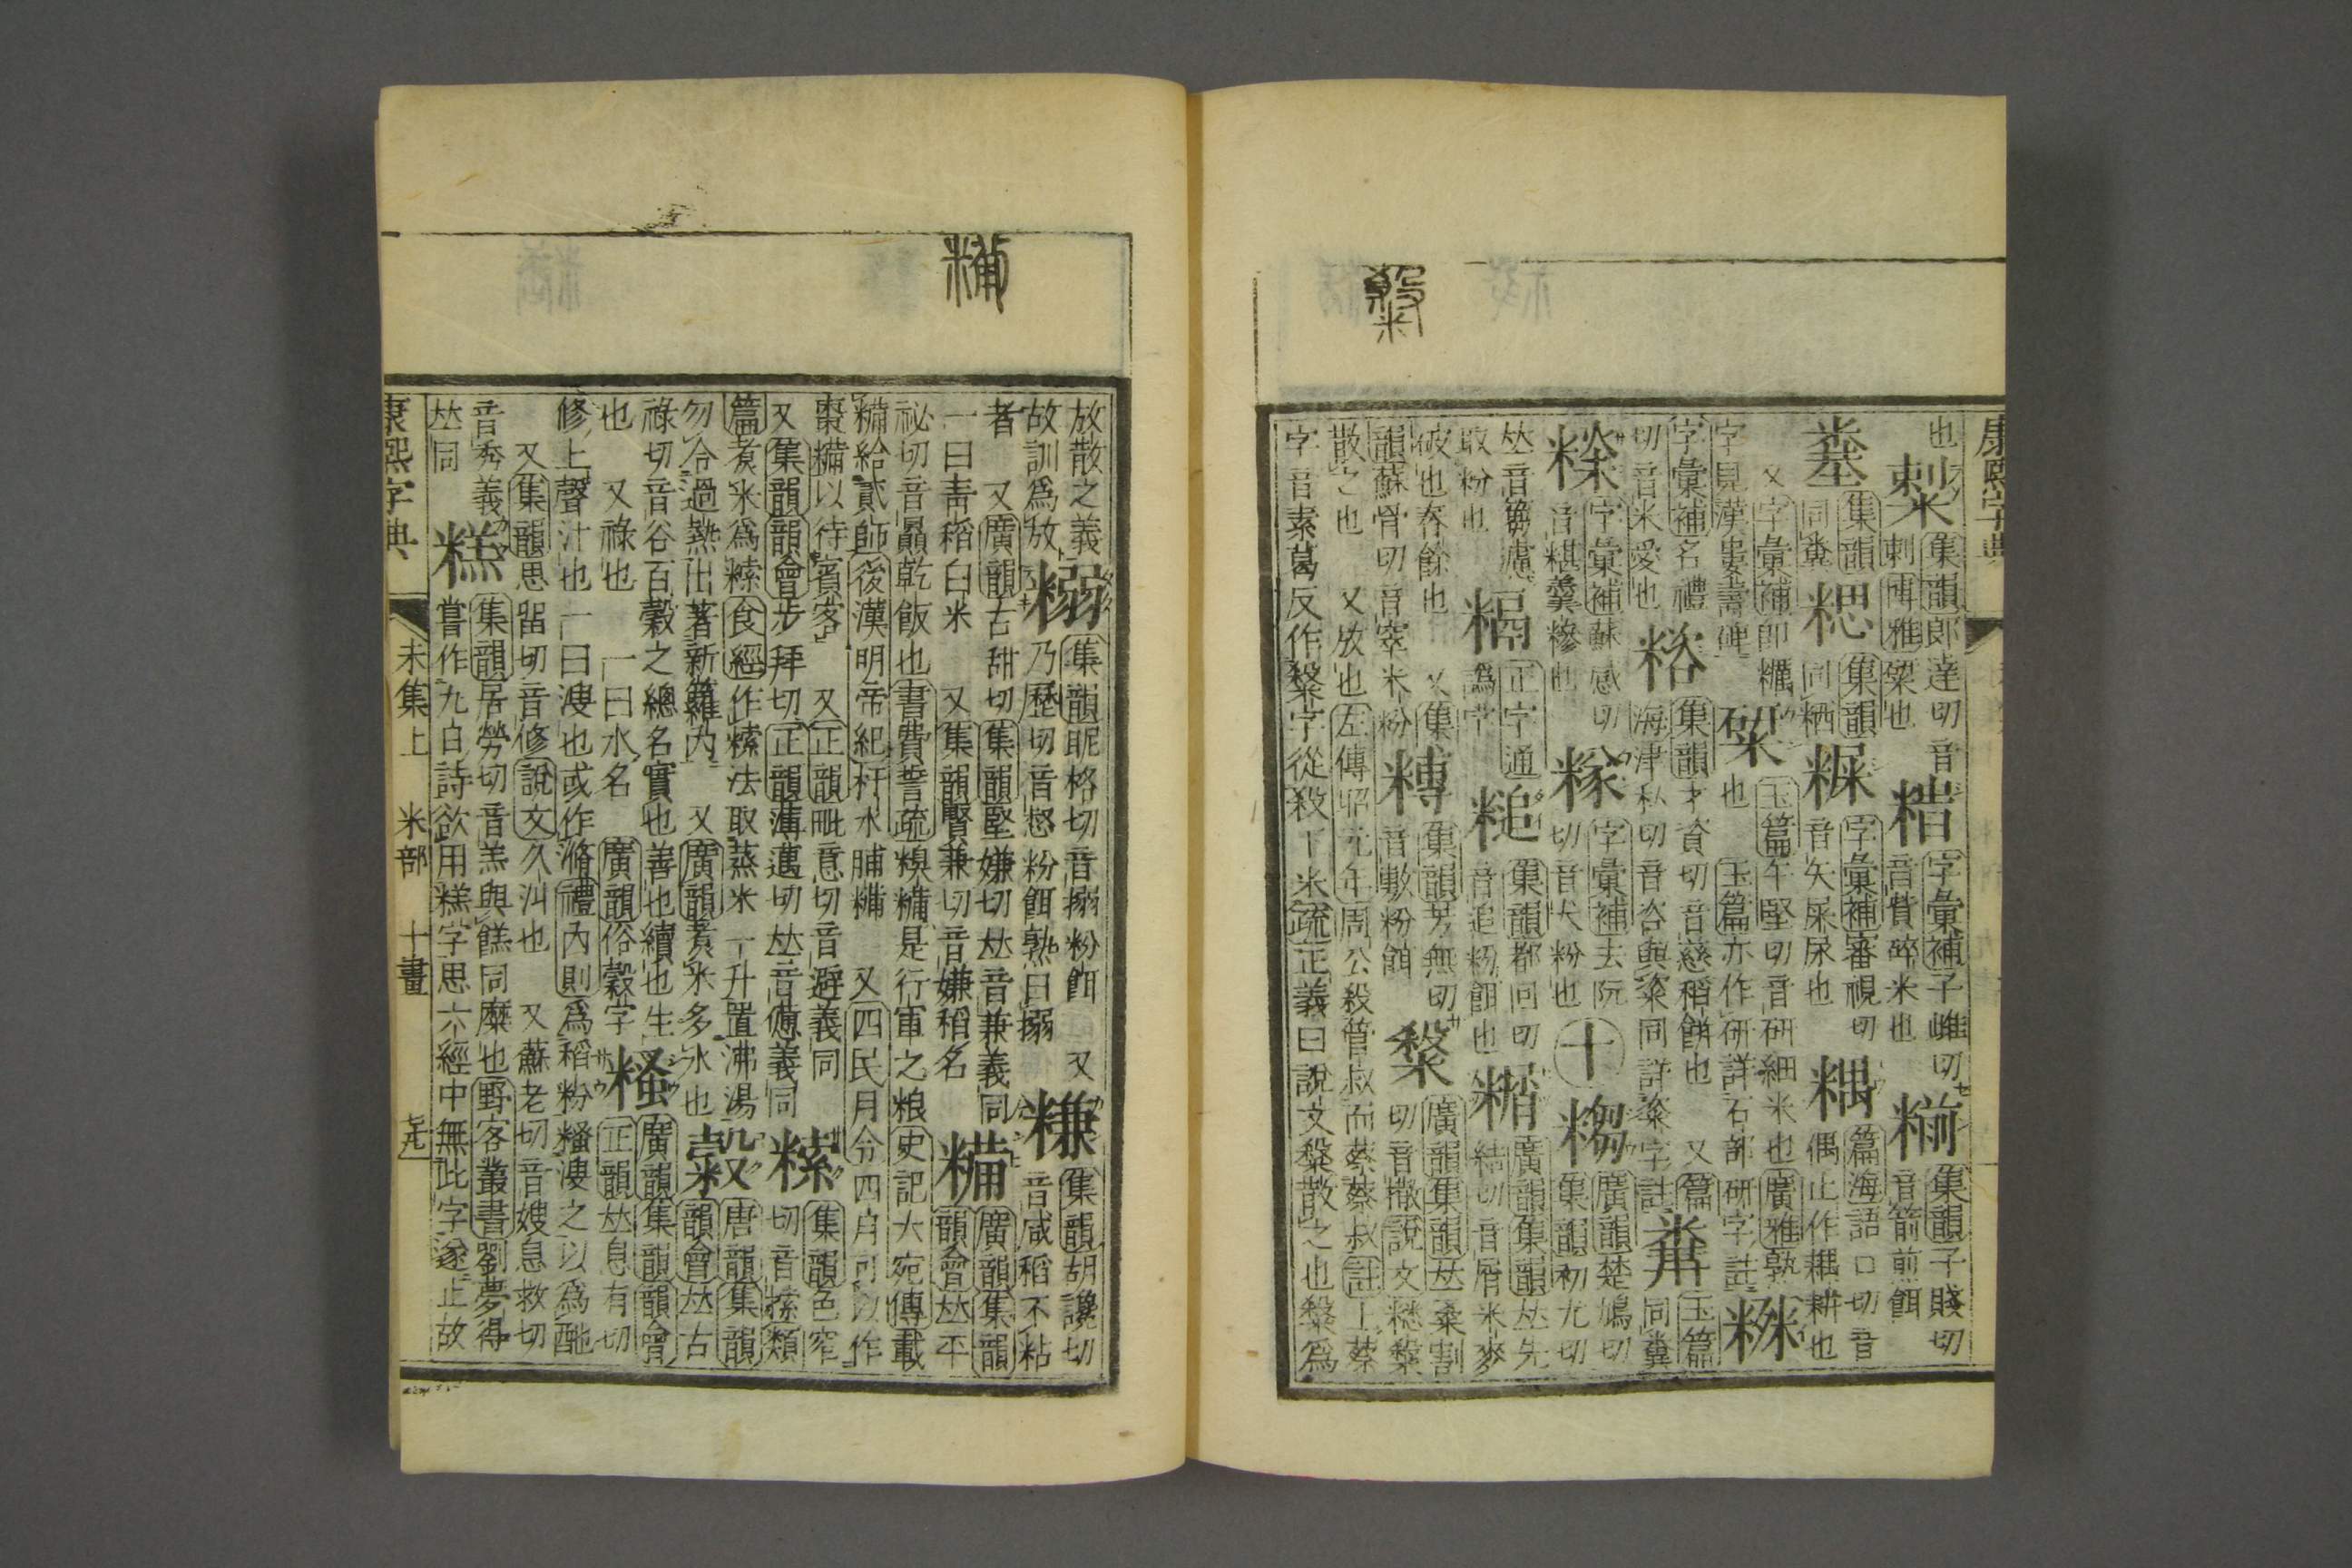 康熙字典
也 集韻郎達切音剌博雅粲也 字彙補子雌切音貲碎米也 糋 集韻子賤切音箭煎餌
集韻同糞 集韻同粞 字彙補審視切音矢屎尿也 篇海語口切音偶止作耦耕也
又字彙補即糲字見漢婁壽碑 玉篇午堅切音研細米也廣雅熟也玉篇亦作研詳石部研字註
字彙補名禮切音米愛也 集韻才資切音慈稻餅也 又篇海津私切音咨與粢同詳粢字註 玉篇同糞
字彙補蘇感切音糂羹糝也 字彙補去阮切音犬粉也 十 廣韻楚鳩切集韻初尤切
𠀤音篘漉取粉也 正字通譌字 集韻都回切音追粉餌也 糏 廣韻集韻𠀤先結切音屑米麥
破也舂餘也 又集韻蘇骨切音窣米粉 糐 集韻芳無切音敷粉餌 䊛 廣韻集韻𠀤桑割切音撒說文䊛
散之也 又放也左傳昭元年周公殺管叔而蔡蔡叔註上蔡字音素葛反作䊛字從殺下米疏正義曰說文䊛散之也䊛爲
糒
放散之義故訓爲放 糑 集韻昵格切音搦粉餌 又乃歷切音惄粉餌熟曰搦 集韻胡讒切音咸稻不粘
者 又廣韻古甜切集韻堅嫌切𠀤音兼義同 一曰靑稻白米 又集韻賢兼切音嫌稻名 糒 廣韻集韻韻會𠀤平
祕切音贔乾飯也書費誓疏糗糒是行軍之粮史記大宛傳載糒給貳師後漢明帝紀杅水脯糒 又四民月令四月可以作
棗糒以待賓客 又正韻毗意切音避義同 又集韻韻會步拜切正韻薄邁切𠀤音憊義同 集韻色窄切音類
篇煮米爲食經作法取蒸米一升置沸湯勿令過熱出著新籮內 又廣韻煮米多水也 穀 唐韻集韻韻會𠀤古
祿切音谷百穀之總名實也善也續也生也 又祿也 一曰水名 廣韻俗穀字 廣韻集韻韻會正韻𠀤息有切
修上聲汁也一曰溲也或作滫禮內則爲稻粉糔溲之以爲酏 又集韻思留切音修說文久泔也 又蘇老切音嫂息救切
音秀義𠀤同 糕 集韻居勞切音羔與餻同糜也野客叢書劉夢得嘗作九日詩欲用糕字思六經中無此字遂止故
康熙字典 未集上 米部 十畫